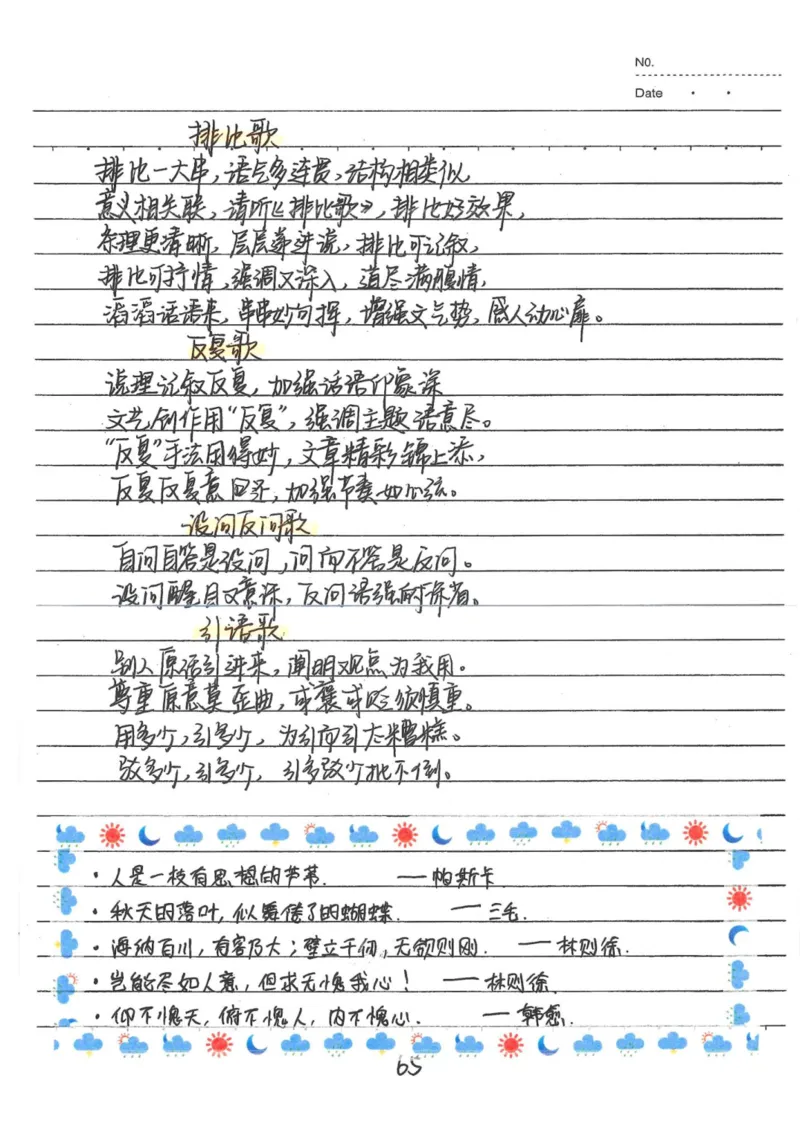 NO.
Date
排比歌
排比一大串，语气多连贯，结构相类似，
意义相关联，请听《排比歌》，排比好效果，
条理更清晰，层层递进说，排比可记叙，
排比可抒情，强调又深入，道尽满腹情，
滔滔话语来，串串妙句挥，增强文气势，感人动心扉。
反复歌
说理记叙反复，加强话语印象深
文艺创作用“反复”，强调主题语意尽。
“反复”手法用得妙，文章精彩锦上添，
反复反复意回环，加强节奏如心弦。
设问反问歌
自问自答是设问，问而不答是反问。
设问醒目又意深，反问语强前作省。
引语歌
别人原话引进来，阐明观点为我用。
尊重原意莫歪曲，或褒或贬须慎重。
用多少，引多少，为引而引大糟糕。
驳多少，引多少，引多驳少批不倒。
·人是一枝有思想的芦苇. ——帕斯卡.
·秋天的落叶，似舞倦了的蝴蝶. ——三毛.
·海纳百川，有容乃大；壁立千仞，无欲则刚. ——林则徐.
·岂能尽如人意，但求无愧我心！——林则徐.
·仰不愧天，俯不愧人，内不愧心. ——韩愈.
65